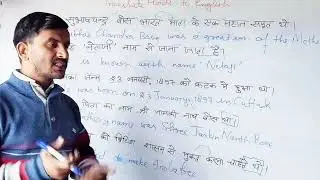 Translate Hindi to English
सुभाषचन्द्र बोस भारत माता के एक महान सपूत थे।
Subhas Chandra Bose was a great son of the Mother
"नेताजी" नाम से जाना जाता है।
is known with name 'Netaji'
जन्म 23 जनवरी, 1897 को कटक में हुआ था।
was born on 23 January, 1897 in Cuttack
पिता का नाम श्री जानकी नाथ बोस था।
name was Shree Janki Nath Bose
को ब्रिटिश शासन से मुक्त करना चाहते थे।
to make India free